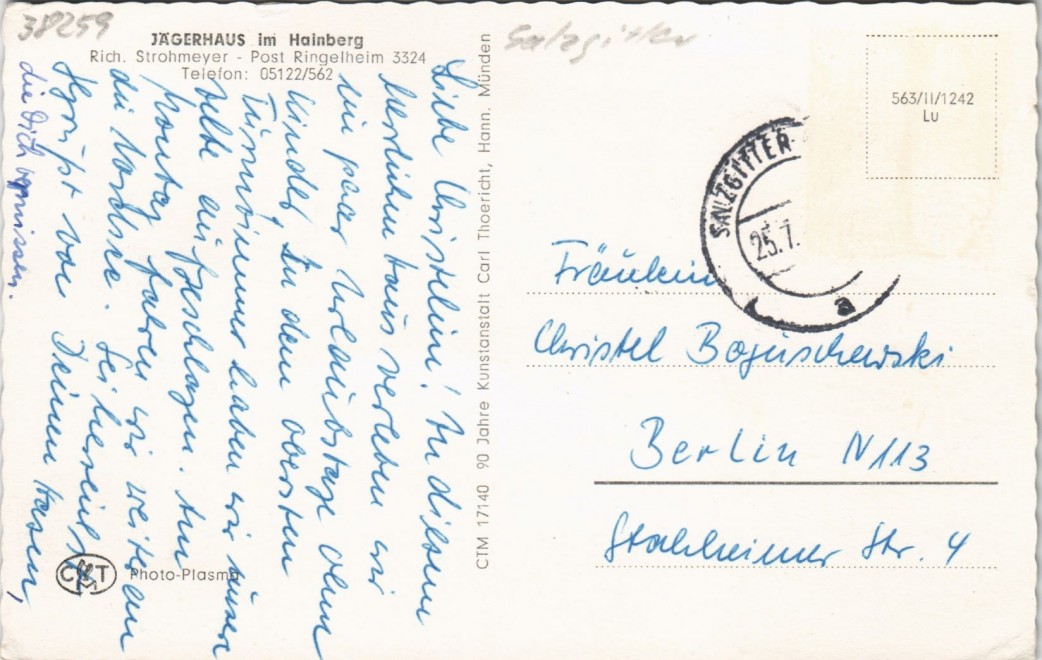 38259
JÄGERHAUS im Hainberg
Rich. Strohmeyer - Post Ringelheim 3324
Telefon: 05122/562
Liebe Christelini! In diesem
herrlichen Haus verleben wir
ein paar Urlaubstage ohne
Kinder. In dem obersten
Turmzimmer haben wir unser
aufgeschlagen. Am
Sonntag fahren wir weiter an
die Nordsee. Sei herzlichst
gegrüßt von Deinen Hasen,
die Dich vermissen.
CKT Photo-Plasma
CTM 17140 90 Jahre Kunstanstalt Carl Thoericht, Hann. Münden
Salzgitter
563/II/1242
Lu
SALZGITTER-
25.7.
a
Fräulein
Christel Boguschewski
Berlin N 113
Stahlheimer Str. 4